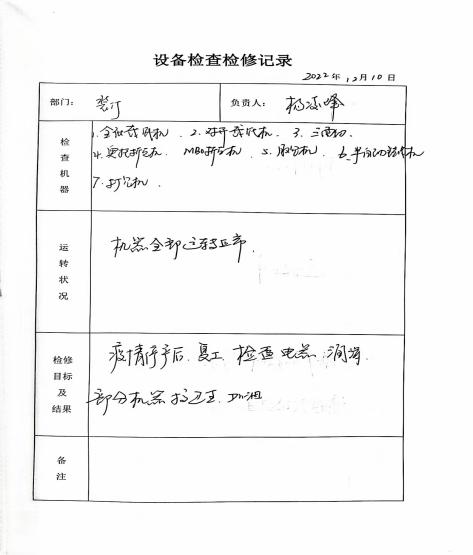 设备检查检修记录
2022年12月10日
部门： 装订
负责人： 杨
检查机器
1. 全张裁纸机 . 2. 对开裁纸机 . 3. 三面切
4. 折页机 . MBO折页机 . 5. 胶包机 . 6. 半自动
7. 打包机 .
运转状况
机器全部运转正常 .
检修目标及结果
疫情停产后 . 复工 检查电器 . 润滑 .
部分机器 打卫生 . 加油
备注